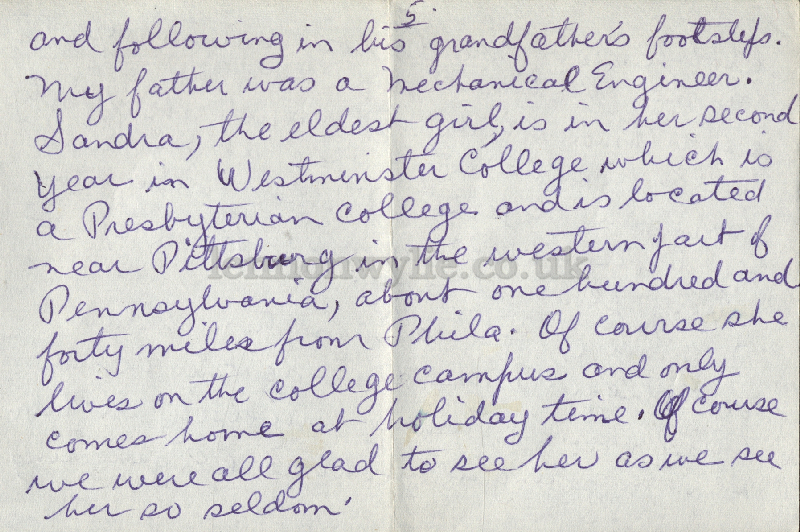 5.
and following in his grandfather's footsteps.
My father was a Mechanical Engineer.
Sandra, the eldest girl, is in her second
year in Westminster College which is
a Presbyterian College and is located
near Pittsburg in the western part of
lennonwylie.co.uk
Pennsylvania, about one hundred and
forty miles from Phila. Of course she
lives on the college campus and only
comes home at holiday time. Of course
we were all glad to see her as we see
her so seldom.